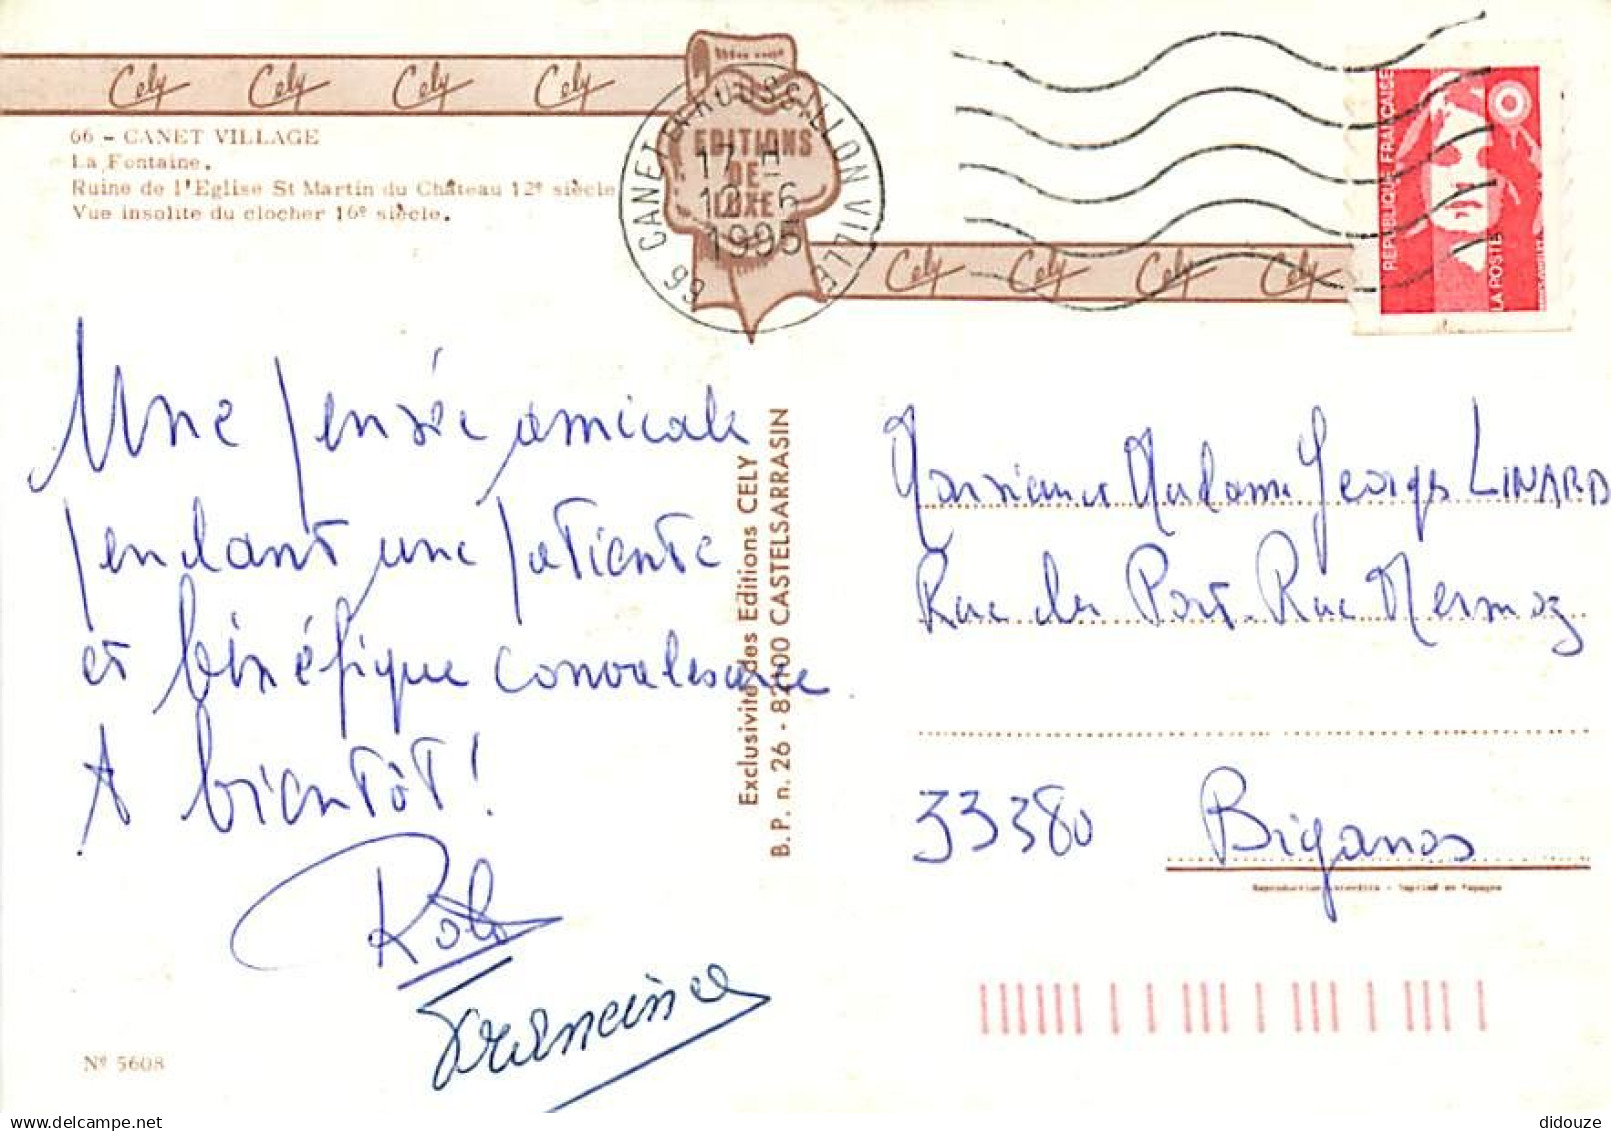 Cely Cely Cely Cely
66 - CANET VILLAGE
La Fontaine.
Ruine de l'Eglise St Martin du Château 12e siècle
Vue insolite du clocher 16e siècle.
EDITIONS
DE
LUXE
66 CANET EN ROUSSILLON VILLE
17 H
10 - 6
1995
Cely Cely Cely Cely
REPUBLIQUE FRANÇAISE
LA POSTE
Une pensée amicale
pendant une patiente
et bénéfique convalescence
A bientôt!
Francine
Exclusivité des Editions CELY
B.P. n. 26 - 82100 CASTELSARRASIN
Monsieur Madame Georges LINARD
Rue du Port - Rue Mermoz
33380 Biganos
Reproduction interdite - Imprimé en Espagne
Nº 5608
didouze
www.delcampe.net